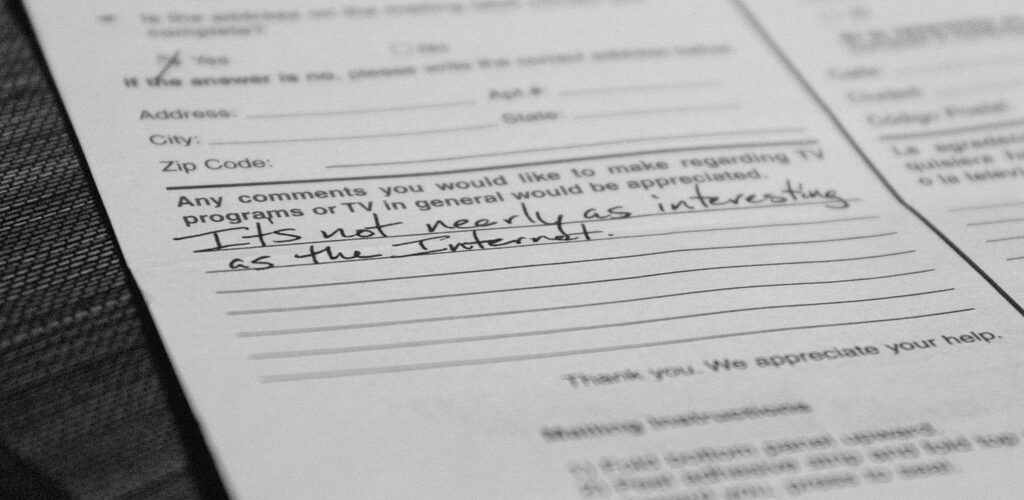 Is the address on the mailing label correct and
complete?
Yes No
If the answer is no, please write the correct address below.
Address: Apt.#:
City: State:
Zip Code:
Any comments you would like to make regarding TV
programs or TV in general would be appreciated.
It's not nearly as interesting
as the Internet.
Thank you. We appreciate your help.
Mailing Instructions
1) Fold bottom panel upward.
2) Fold adhesive strip and fold top
Código Postal:
Le agradec
quisiera h
o la televi